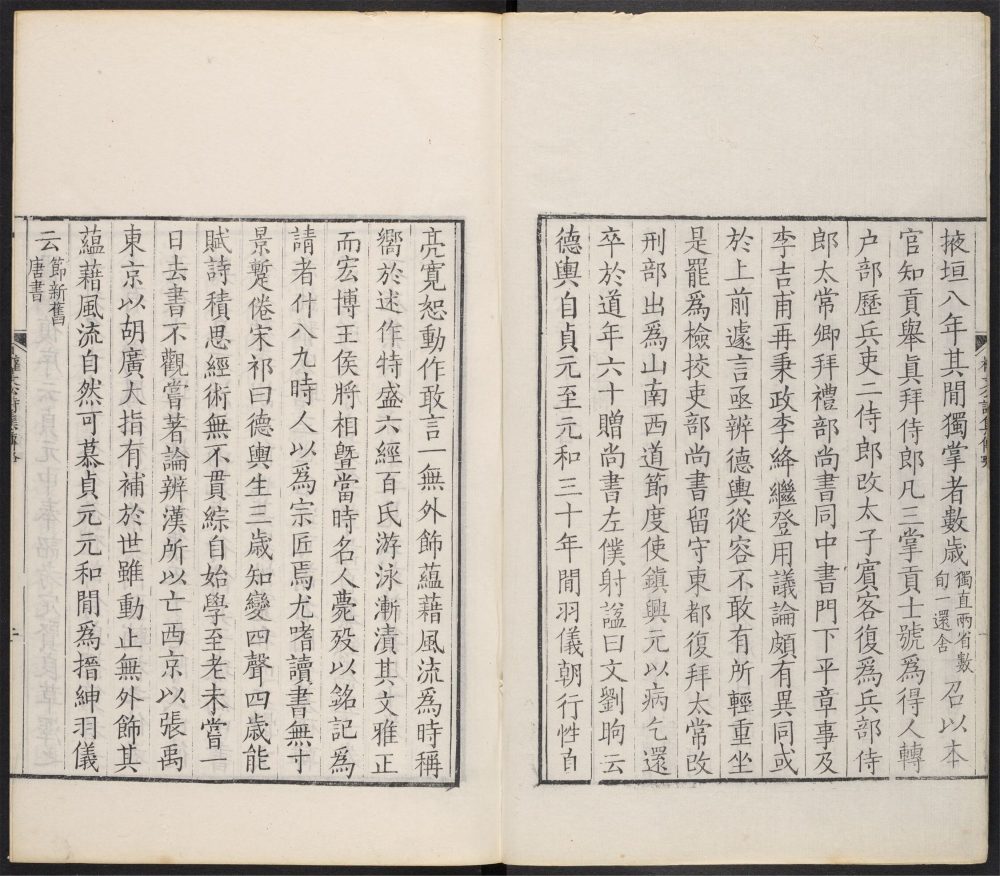 掖垣八年其閒獨掌者數歲獨直兩省數旬一還舍召以本
官知貢舉眞拜侍郎凡三掌貢士號爲得人轉
户部歷兵吏二侍郎改太子賓客復爲兵部侍
郎太常卿拜禮部尚書同中書門下平章事及
李吉甫再秉政李絳繼登用議論頗有異同或
於上前遽言亟辨德輿從容不敢有所輕重坐
是罷爲檢挍吏部尚書留守東都復拜太常改
刑部出爲山南西道節度使鎭興元以病乞還
卒於道年六十贈尚書左僕射諡曰文劉昫云
德輿自貞元至元和三十年閒羽儀朝行性自
亮寛恕動作敢言一無外飾蘊藉風流爲時稱
嚮於述作特盛六經百氏游泳漸漬其文雅正
而宏博王侯將相曁當時名人薨殁以銘記爲
請者什八九時人以爲宗匠焉尤嗜讀書無寸
景蹔倦宋祁曰德輿生三歲知變四聲四歲能
賦詩積思經術無不貫綜自始學至老未嘗一
日去書不觀嘗著論辨漢所以亡西京以張禹
東京以胡廣大指有補於世雖動止無外飾其
蘊藉風流自然可慕貞元元和閒爲搢紳羽儀
云節新舊唐書